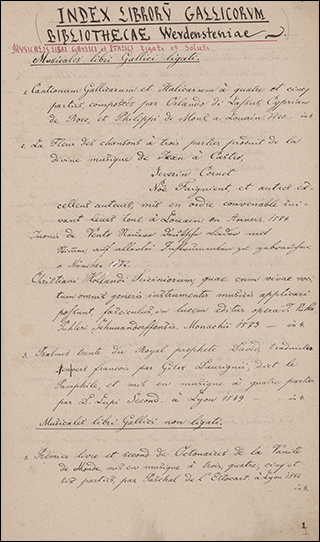 INDEX LIBRORŪ GALLICORVM
BIBLIOTHECAE Weydensteniae.
MUSICALES LIBRI GALLICI et ITALICI Ligati et Soluti
Musicales libri Gallici ligati.
1. Cantionum Gallicarum et Italicarum à quatre et cinq
parties, composées par Orlando di Lassus, Cyprian
de Rore, et Philippi de Mons a Louain 1570. in 4.
2. La Fleur des chansons à trois parties produit de la
divine musique de Jean à Castro,
Severin Cornet
Noë Faignient, et autres ex-
cellens auteurs, mis en ordre convenable sui-
vant leurs tons, à Louain, en Anvers. 1574.
Juonis de Vento Newe Teutsche Lieder mit
Stimmen auff allerlei Instrumenten zu gebrauchen
a München 1572.
Christiani Hollandi Triciniorum, quae cum vivae voci,
tum omnis generis instrumentis musicis applicari
possunt, fasciculus, in lucem editus opera
Schwandorffensis. Monachii 1573 — in 4.
3. Psalmes trente du Royal prophete David, traduites
en vers francois par Giles Daurigni, dict le
Pamphile, et mis en musique à quatre parties
par D. Lupi Second. à Lyon 1549 — in 4.
Musicales libri Gallici non ligati.
1. Prémice livre et second de Octonaires de la Vanité
de Monde, mis en musique à trois, quatre, cinq et
six parties, par Paschal de l'Estocart. à Lyon
in 4.
1